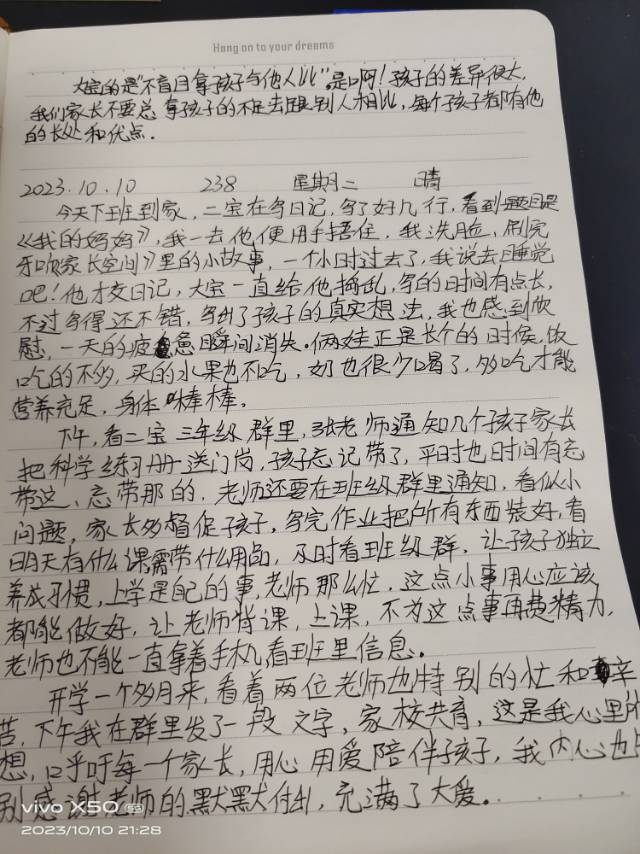 Hang on to your dreams
大宝的是“不盲目拿孩子与他人比”是啊!孩子的差异很大,
我们家长不要总拿孩子的不足去跟别人相比,每个孩子都有他
的长处和优点.
2023.10.10 238 星期二 晴
今天下班到家,二宝在写日记,写了好几行,看到题目是
《我的妈妈》,我一去他便用手捂住,我洗脸,刷完
牙吹家长空间》里的小故事,一个小时过去了,我说去睡觉
吧!他才交日记,大宝一直给他捣乱,写的时间有点长,
不过写得还不错,写出了孩子的真实想法,我也感到欣
慰,一天的疲惫瞬间消失.俩娃正是长个的时候,饭
吃的不多,买的水果也不吃,奶也很少喝了,多吃才能
营养充足,身体棒棒.
下午,看二宝三年级群里,张老师通知几个孩子家长
把科学练习册送门岗,孩子忘记带了,平时也时间有忘
带这、忘带那的.老师还要在班级群里通知,看似小
问题,家长多督促孩子,写完作业把所有东西装好,看
明天有什么课需带什么用品,及时看班级群,让孩子独立
养成习惯,上学是自己的事,老师那么忙,这点小事用心应该
都能做好,让老师背课,上课,不为这点事再费精力,
老师也不能一直拿着手机看班里信息。
开学一个多月来,看着两位老师也特别的忙和辛
苦,下午我在群里发了一段文字,家校共育,这是我心里所
想,口乎吁每一个家长,用心用爱陪伴孩子,我内心也
别感谢老师的默默付出,充满了大爱。
vivo X50 5G
2023/10/10 21:28